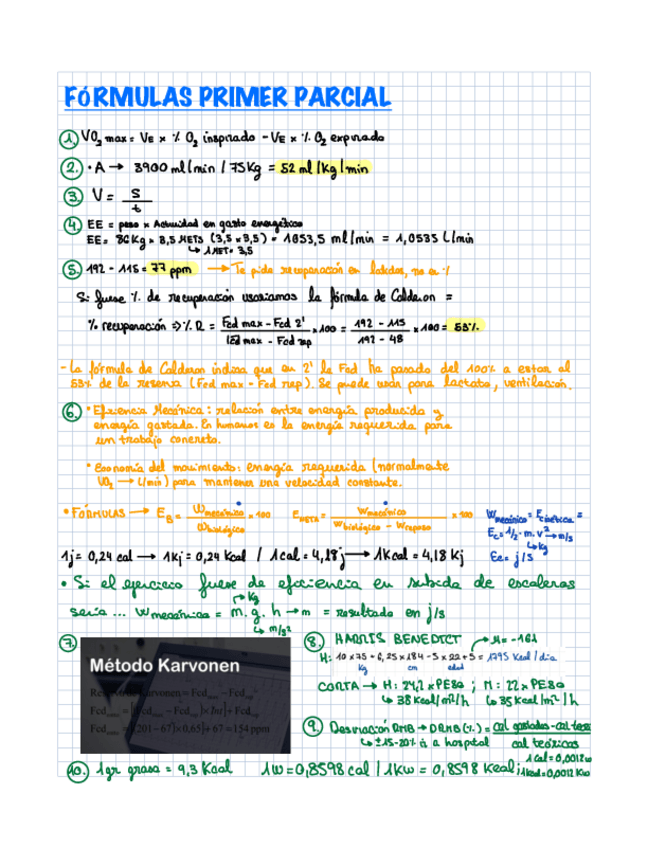 FÓRMULAS PRIMER PARCIAL
1. VO2 max = VE x % O2 inspirado - VE x % O2 expirado
2. • A → 3900 ml/min / 75Kg = 52 ml/Kg/min
3. V = s / t
4. EE = peso x Actividad en gasto energético
EE = 86Kg x 3,5 METS (3,5 x 3,5) = 1053,5 ml/min = 1,0535 L/min
↳ 1 MET = 3,5
5. 192 - 115 = 77 ppm → Te pide recuperación en latidos, no en %
Si fuese % de recuperación usaríamos la fórmula de Calderon =
% recuperación => % R = Fcd max - Fcd 2' / Fcd max - Fcd rep x 100 = 192 - 115 / 192 - 48 x 100 = 53%
- La fórmula de Calderon indica que en 2' la Fcd ha pasado del 100% a estar al
53% de la reserva (Fcd max - Fcd rep). Se puede usar para lactato, ventilación.
6. • Eficiencia Mecánica: relación entre energía producida y
energía gastada. En humanos es la energía requerida para
un trabajo concreto.
• Economía del movimiento: energía requerida (normalmente
VO2 → L/min) para mantener una velocidad constante.
• FÓRMULAS → EB = Wmecánico / Wbiológico x 100 ENETA = Wmecánico / Wbiológico - Wreposo x 100
Wmecánico = Ecinética =
Ec = 1/2 · m · v² → m/s
↳ kg
Ec = j/s
1j = 0,24 cal → 1Kj = 0,24 Kcal / 1cal = 4,18j → 1Kcal = 4,18 Kj
• Si el ejercicio fuese de eficiencia en subida de escaleras
sería ... Wmecánico = m · g · h → m = resultado en j/s
↳ Kg
↳ m/s²
7. Método Karvonen
Reserva Karvonen = Fcd max - Fcd rep
[(201 - 67) x 0,65] + 67 = 154 ppm
8. HARRIS BENEDICT → M = -161
H: 10 x 75 + 6,25 x 184 - 5 x 22 + 5 = 1795 Kcal / dia
Kg cm edad
CORTA → H: 24,2 x PESO ; M: 22 x PESO
↳ 38 Kcal/m²/h ↳ 35 Kcal/m²/h
9. Desviación RMB → DRMB (%) = cal gastadas - cal teor / cal teóricas
↳ ±15-20% ir a hospital
1 cal = 0,0012 w
1 Kcal = 0,0012 Kw
10. 1gr grasa = 9,3 Kcal 1w = 0,8598 cal / 1Kw = 0,8598 Kcal;